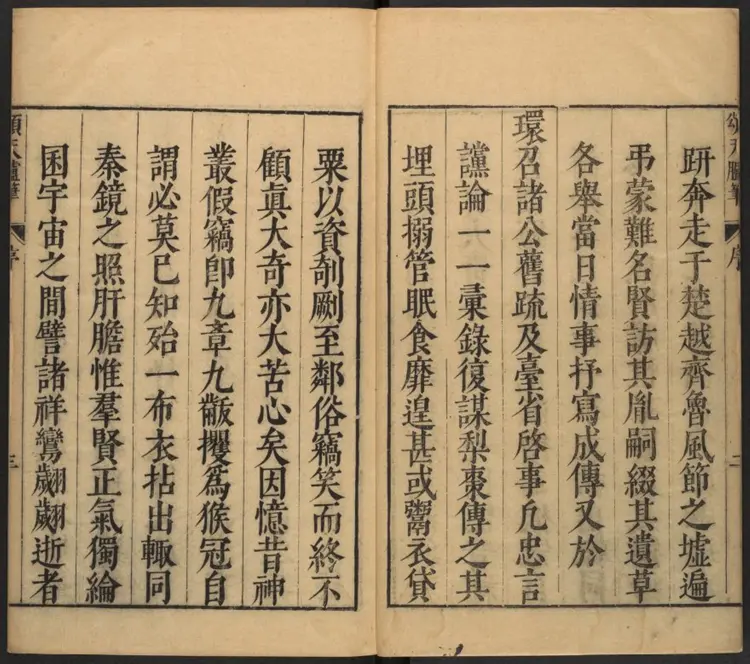 頌天臚筆
序
二
趼奔走于楚越齊魯風節之墟遍
弔蒙難名賢訪其胤嗣綴其遺草
各舉當日情事抒寫成傳又於
環召諸公舊疏及臺省啓事凡忠言
讜論一一彙錄復謀梨棗傳之其
埋頭搦管眠食靡遑甚或鬻衣貸
粟以資剞劂至鄰俗竊笑而終不
顧眞大奇亦大苦心矣因憶昔神
叢假竊卽九章九黻攫爲猴冠自
謂必莫已知殆一布衣拈出輙同
秦鏡之照肝膽惟羣賢正氣獨綸
囷宇宙之間譬諸祥鸞翽翽逝者
頌天臚筆
序
三